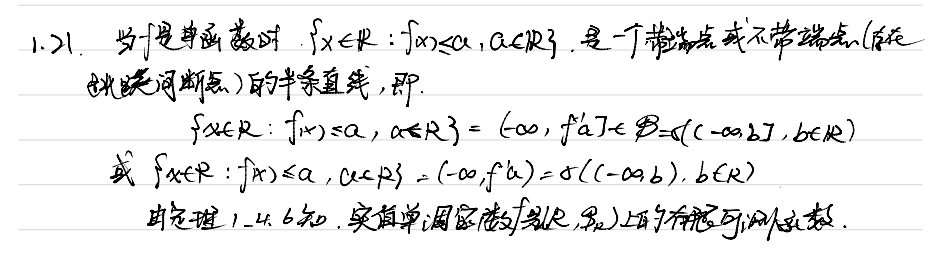 1.21. 当f是单函数时 {x∈R : f(x)≤a, a∈R}, 是一个带端点或不带端点(存在
跳跃间断点)的半条直线,即.
{x∈R : f(x)≤a, a∈R} = (-∞, f⁻¹a] ∈ ℬ=σ((-∞,b], b∈R)
或 {x∈R : f(x)≤a, a∈R} = (-∞, f⁻¹a) = σ((-∞,b), b∈R)
由定理 1.4.6知, 实值单调函数f是(R, ℬ_R)上的可测函数.